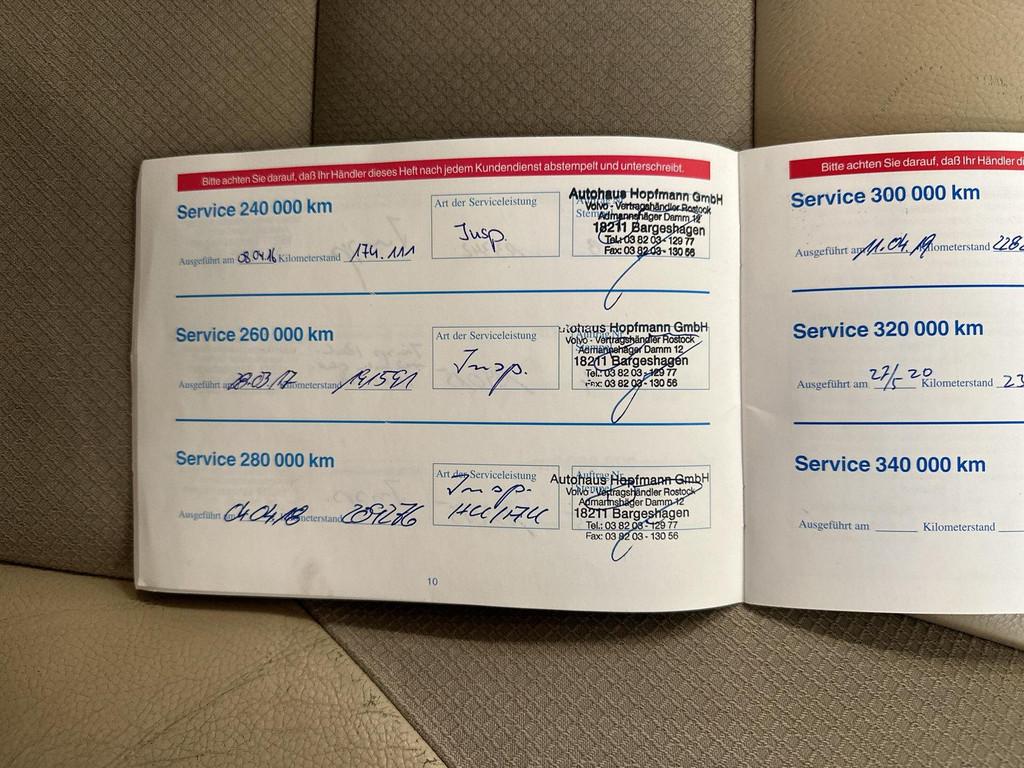 Bitte achten Sie darauf, daß Ihr Händler dieses Heft nach jedem Kundendienst abstempelt und unterschreibt.
Service 240 000 km
Ausgeführt am 08.04.16 Kilometerstand 174.111
Art der Serviceleistung
Insp.
Autohaus Hopfmann GmbH
Volvo - Vertragshändler Rostock
Admannshäger Damm 12
18211 Bargeshagen
Tel.: 03 82 03 - 129 77
Fax: 03 82 03 - 130 56
Service 260 000 km
Ausgeführt am 28.03.17 Kilometerstand 191591
Art der Serviceleistung
Insp.
Autohaus Hopfmann GmbH
Volvo - Vertragshändler Rostock
Admannshäger Damm 12
18211 Bargeshagen
Tel.: 03 82 03 - 129 77
Fax: 03 82 03 - 130 56
Service 280 000 km
Ausgeführt am 04.04.18 Kilometerstand
Art der Serviceleistung
Insp.
Auftrag Nr.
Autohaus Hopfmann GmbH
Volvo - Vertragshändler Rostock
Admannshäger Damm 12
18211 Bargeshagen
Tel.: 03 82 03 - 129 77
Fax: 03 82 03 - 130 56
10
Bitte achten Sie darauf, daß Ihr Händler di
Service 300 000 km
Ausgeführt am 11.04.19 Kilometerstand 228
Service 320 000 km
Ausgeführt am 27/5 20 Kilometerstand 23
Service 340 000 km
Ausgeführt am Kilometerstand